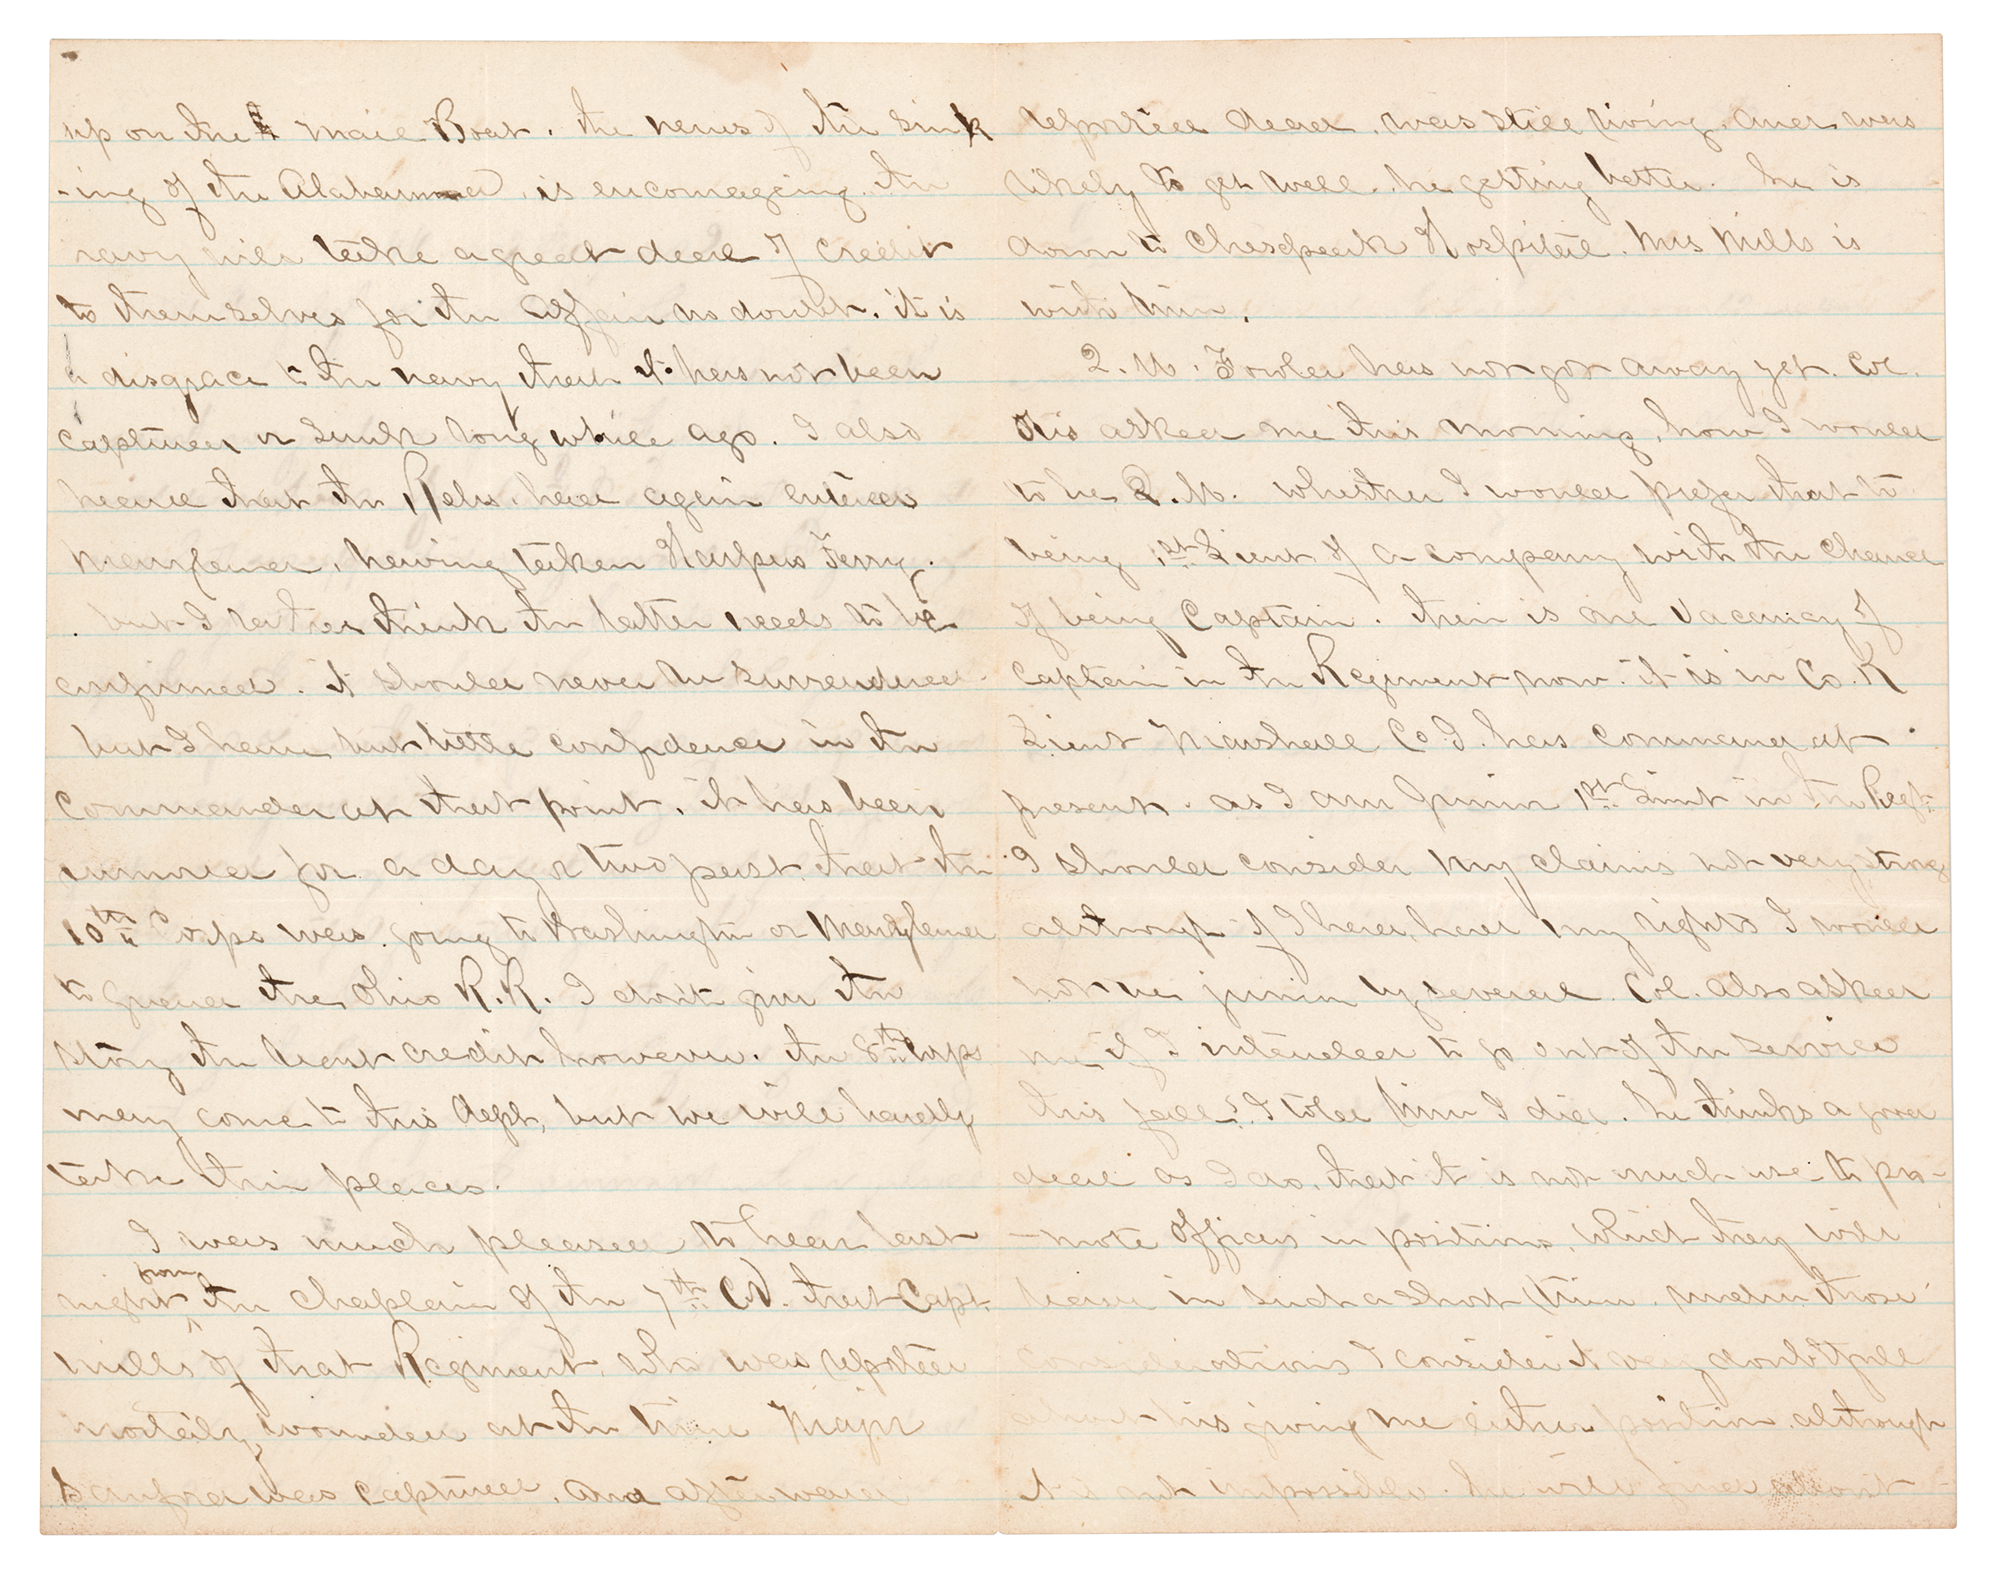 up on the Mail Boat. The news of the sink
-ing of the Alabama, is encouraging. The
navy will take a great deal of credit
to themselves for the affair no doubt. it is
a disgrace to the navy that it has not been
captured or sunk long while ago. I also
heard that the Rebs. have again entered
Maryland, having taken Harpers Ferry.
but I rather think the latter needs to be
confirmed. it should never be surrendered
but I have but little confidence in the
Commander at that point. it has been
rumored for a day or two past, that the
10th Corps was going to Washington or Maryland
to guard the Ohio R.R. I don't give the
story the least credit however. the 8th Corps
may come to this Dept, but we will hardly
take their places.
I was much pleased to hear last
night from the Chaplain of the 7th CV. that Capt.
Mills of that Regiment, who was reported
mortally wounded at the time Major
Sanford was captured, and afterward
reported dead, was still living, and was
likely to get well. he getting better. He is
down to Chesapeak Hospital. Mrs Mills is
with him.
Q. M. Fowler has not got away yet. Col.
Otis asked me this morning, how I would
to be Q.M. whether I would prefer that to
being 1st Lieut of a company with the chance
of being Captain. there is one vacancy of
Captain in the Regiment now. it is in Co. K
Lieut Marshall Co I. has command at
present. as I am Junior 1st Lieut in the Regt.
I should consider my claims not very strong
although if I had, had my rights I would
not be junior by several. Col. also asked
me if I intended to go out of the service
this fall? I told him I did. he thinks a good
deal as I do, that it is not much use to pro-
-mote Officers in positions, which they will
leave in such a short time. under those
considerations I consider it very doubtfull
about his giving me either position, although
it is not impossible. he will find about